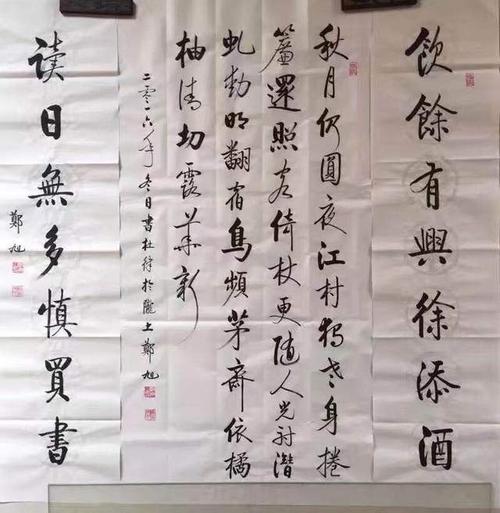 飲餘有興徐添酒
秋月仍圓夜江村独老身捲
簾還照客倚杖更随人光射潛
虬動明翻宿鳥頻茅齋依橘
柚清切露華新
二零一六年冬日書杜詩於隴上鄭旭
读日無多慎買書
鄭旭